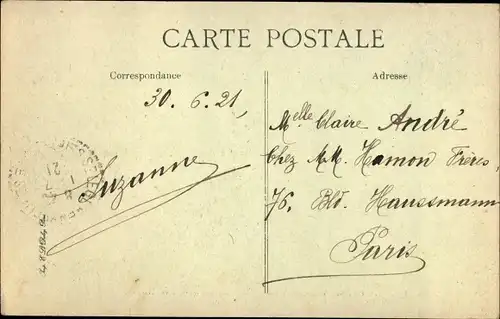 CARTE POSTALE
Correspondance
Adresse
30. 6. 21,
Suzanne
Melle Claire André
Chez M.M. Hamon Frères,
76, Bld. Haussmann
Paris